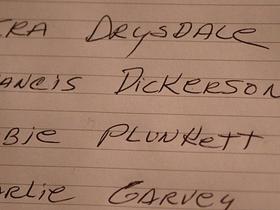 ERA DRYSDALE
ANCIS DICKERSON
BBIE PLUNKETT
ARLIE GARVEY